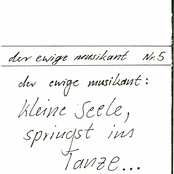 der ewige musikant Nr. 5
der ewige musikant:
kleine Seele,
springst im
Tanze...